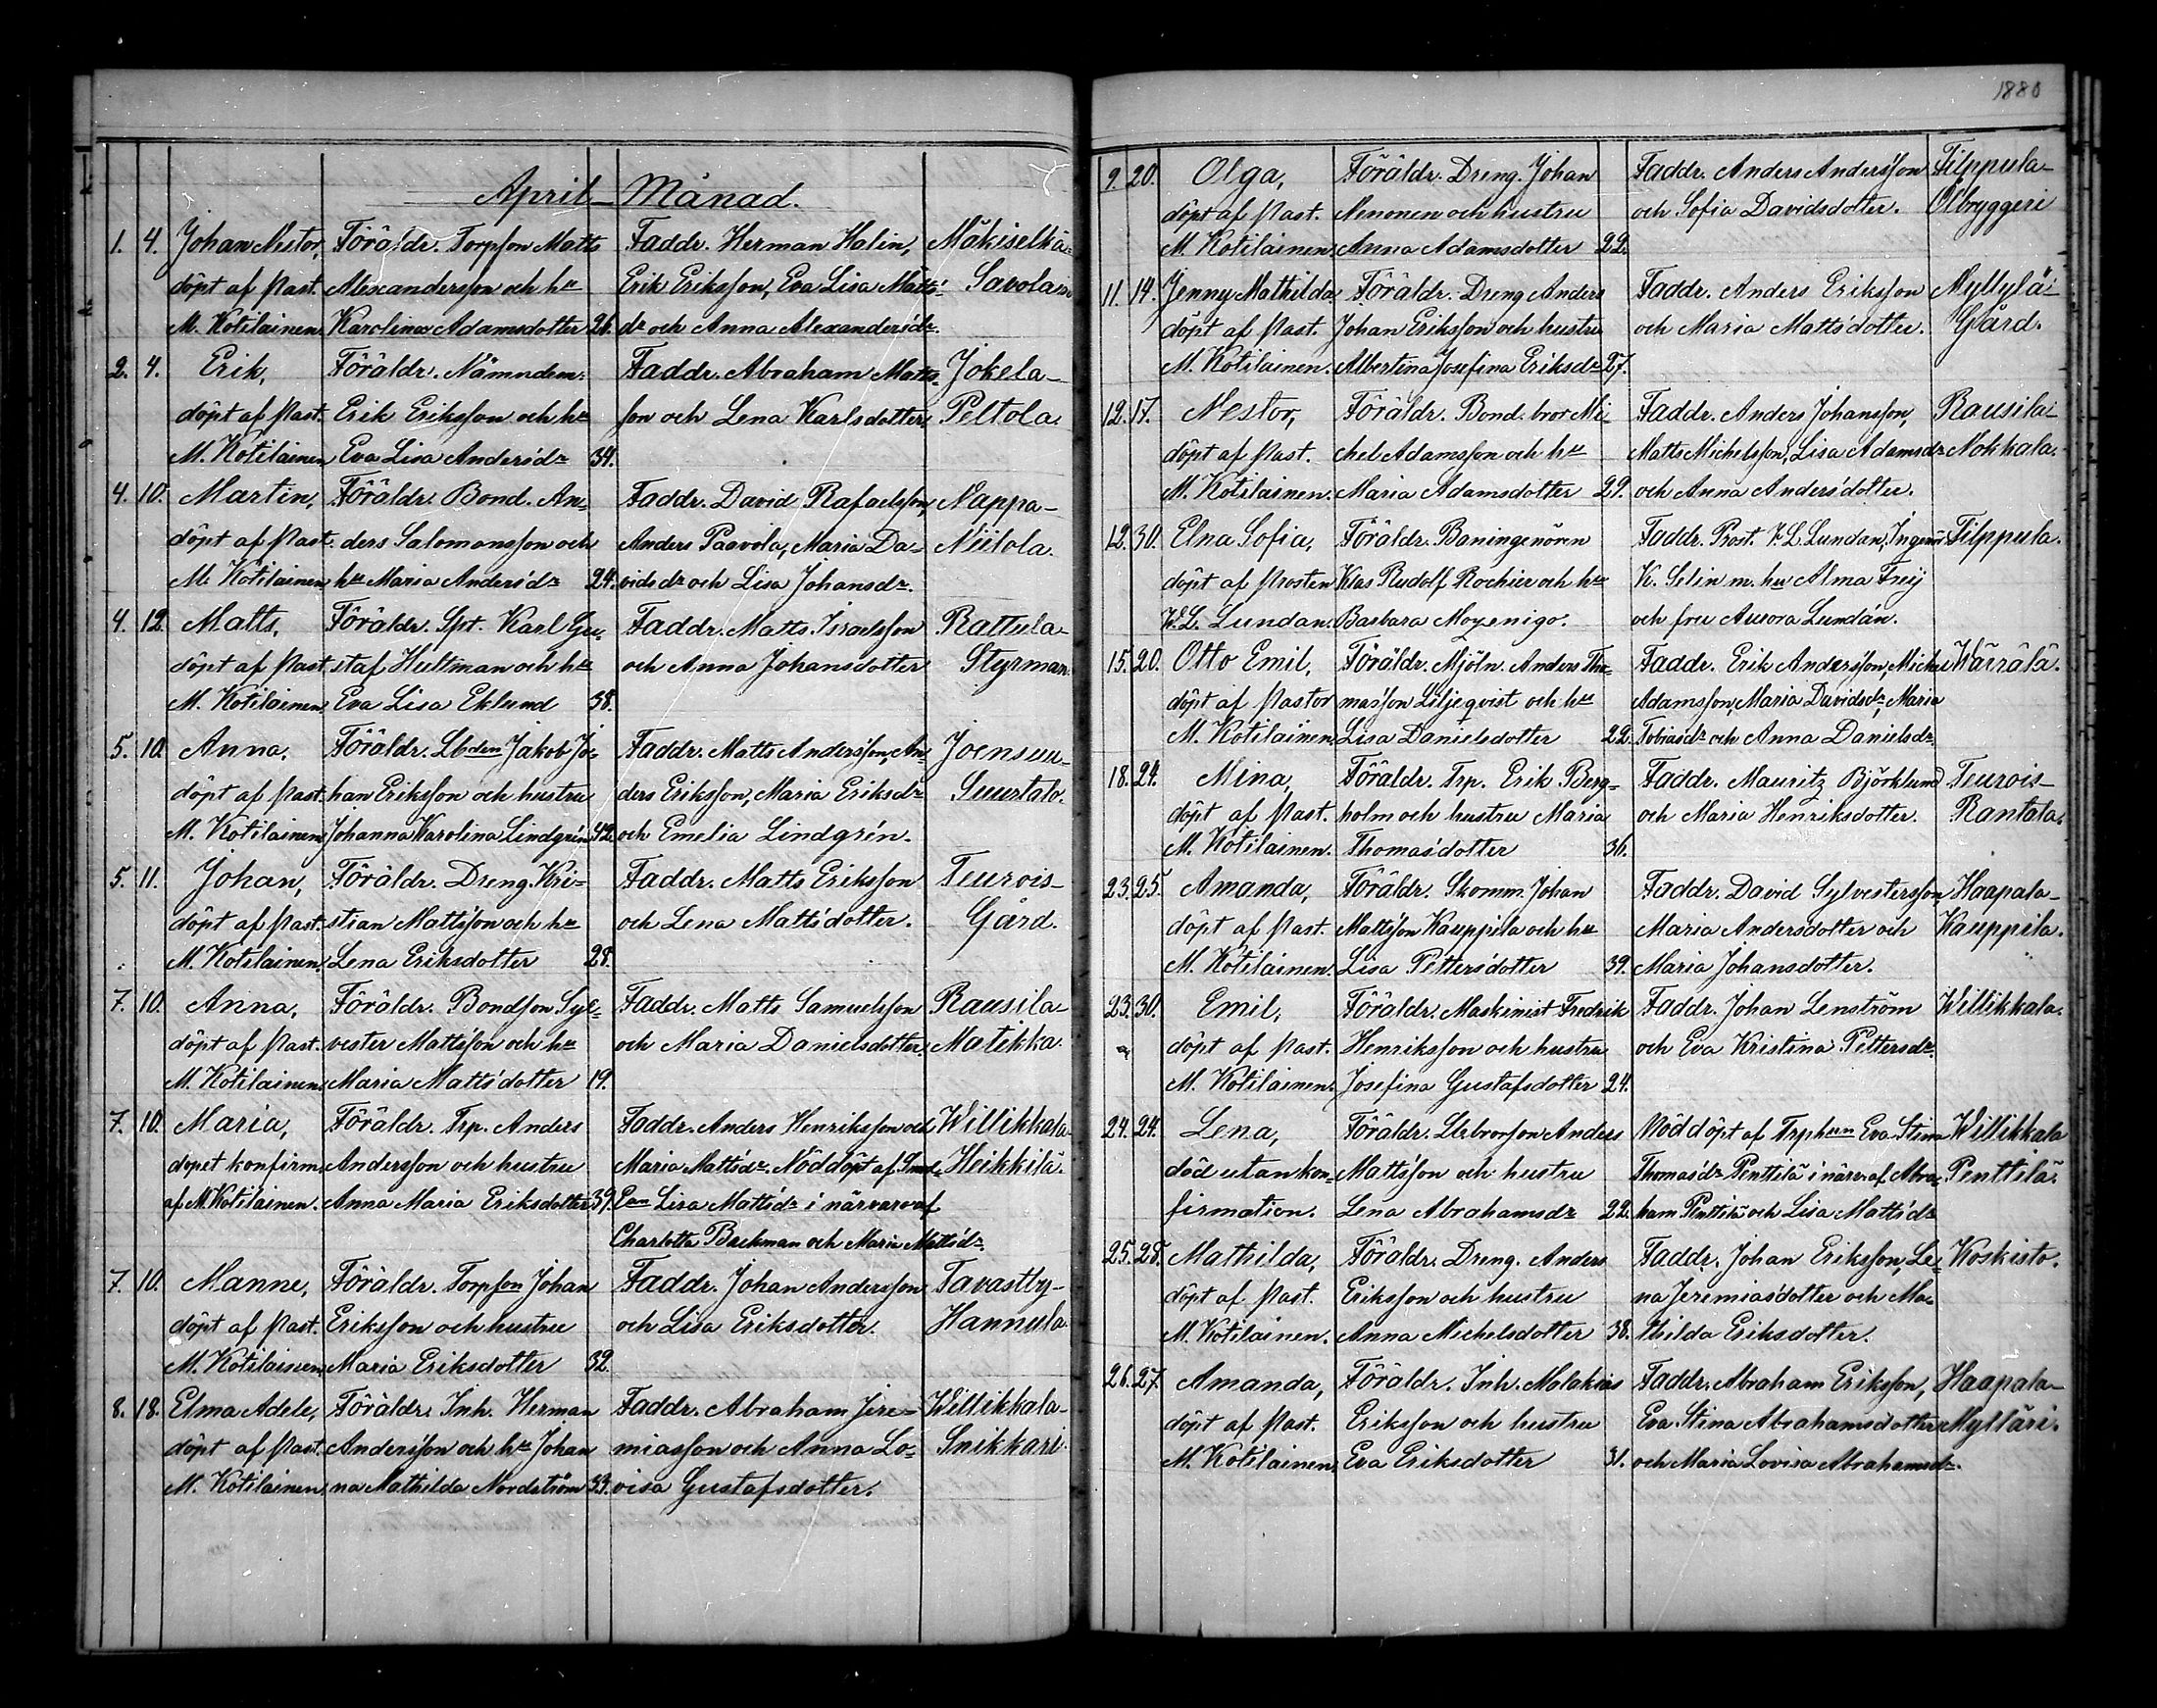 1880
April Månad.
1. 4. Johan Nestor, Föräldr. Torpson Matts Faddr. Herman Halin, Mäkiselkä-
döpt af Past. Alexandersson och hu Erik Eriksson, Eva Lisa Matts- Savolain
M. Kotilainen Karolina Adamsdotter 26. dr och Anna Alexandersdr.
2. 4. Erik, Föräldr. Nämndem. Faddr. Abraham Matts- Jokela-
döpt af Past. Erik Eriksson och hu son och Lena Karlsdotter. Peltola.
M. Kotilainen Eva Lisa Andersdr 34.
4. 10. Martin, Föräldr. Bond. An- Faddr. David Rafaelsson, Nappa-
döpt af Past. ders Salomonsson och Anders Paavola, Maria Da- Niitola.
M. Kotilainen hu Maria Andersdr 24. vidsdr och Lisa Johansdr.
4. 12. Matts, Föräldr. Spt. Karl Gu- Faddr. Matts Israelsson Rattula-
döpt af Past. staf Hultman och hu och Anna Johansdotter Styrman.
M. Kotilainen. Eva Lisa Eklund 38.
5. 10. Anna, Föräldr. Lbden Jakob Jo- Faddr. Matts Andersson, An- Joensuu-
döpt af Past. han Eriksson och hustru ders Eriksson, Maria Eriksdr Suurtalo.
M. Kotilainen Johanna Karolina Lindgrén 42. och Emelia Lindgrén.
5. 11. Johan, Föräldr. Dreng. Kri- Faddr. Matts Eriksson Teurois-
döpt af Past. stian Mattsson och hu och Lena Mattsdotter. Gård.
M. Kotilainen. Lena Eriksdotter 28.
7. 10. Anna, Föräldr. Bondson Syl- Faddr. Matts Samuelsson Rausila-
döpt af Past. vester Mattsson och hu och Maria Danielsdotter. Matikka.
M. Kotilainen. Maria Mattsdotter 19.
7. 10. Maria, Föräldr. Trp. Anders Faddr. Anders Henriksson och Willikkala-
dopet konfirm. Andersson och hustru Maria Mattsdr. Nöddöpt af Heikkilä.
af M. Kotilainen. Anna Maria Eriksdotter 39. Lisa Mattsdr i närvaro af
Charlotta Backman och Maria Mattsdr.
7. 10. Manne, Föräldr. Torpson Johan Faddr. Johan Andersson Tavastby-
döpt af Past. Eriksson och hustru och Lisa Eriksdotter. Hannula.
M. Kotilainen Maria Eriksdotter 32.
8. 18. Elma Adele, Föräldr. Inh. Herman Faddr. Abraham Jere- Willikkala-
döpt af Past. Andersson och hu Johan miasson och Anna Lo- Snikkari.
M. Kotilainen na Mathilda Nordström 33. visa Gustafsdotter.
9. 20. Olga, Föräldr. Dreng. Johan Faddr. Anders Andersson Filppula-
döpt af Past. Nenonen och hustru och Sofia Davidsdotter. Ölbryggeri
M. Kotilainen. Anna Adamsdotter 22.
11. 14. Jenny Mathilda Föräldr. Dreng Anders Faddr. Anders Eriksson Myllylä-
döpt af Past. Johan Eriksson och hustru och Maria Mattsdotter. Gård.
M. Kotilainen. Albertina Josefina Eriksdr 27.
12. 17. Nestor, Föräldr. Bond. bror Mi- Faddr. Anders Johansson, Rausila-
döpt af Past. chel Adamsson och hu Matts Michelsson, Lisa Adamsdr Nokkala.
M. Kotilainen. Maria Adamsdotter 29. och Anna Andersdotter.
12. 30. Elna Sofia, Föräldr. Baningeniören Faddr. Prost. W. L. Lundan, Ingeniör Filppula.
döpt af Prosten Klas Rudolf Rochier och hu K. Selin m. hu Alma Frey
W. L. Lundan. Barbara Moyenigo. och fru Aurora Lundán.
15. 20. Otto Emil, Föräldr. Mjöln. Anders Tho- Faddr. Erik Andersson, Michel Wärälä.
döpt af Pastor masson Liljeqvist och hu Adamsson, Maria Davidsdr, Maria
M. Kotilainen. Lisa Danielsdotter 22. Tobiasdr och Anna Danielsdr.
18. 24. Mina, Föräldr. Trp. Erik Berg- Faddr. Mauritz Björklund Teurois-
döpt af Past. holm och hustru Maria och Maria Henriksdotter. Rantala.
M. Kotilainen. Thomasdotter 36.
23. 25. Amanda, Föräldr. Skomm. Johan Faddr. David Sylvestersson, Haapala-
döpt af Past. Mattsson Kauppila och hu Maria Andersdotter och Kauppila.
M. Kotilainen. Lisa Pettersdotter 39. Maria Johansdotter.
23. 30. Emil, Föräldr. Maskinist Fredrik Faddr. Johan Lenström Willikkala.
döpt af Past. Henriksson och hustru och Eva Kristina Pettersdr.
M. Kotilainen. Josefina Gustafsdotter 24.
24. 24. Lena, Föräldr. Lbrorson Anders Nöddöpt af Trphun Eva Stina Willikkala
död utan kon- Mattsson och hustru Thomasdr Penttilä i närv. af Abra- Penttilä.
firmation. Lena Abrahamsdr 22. ham Penttilä och Lisa Mattsdr
25. 28. Mathilda, Föräldr. Dreng. Anders Faddr. Johan Eriksson, Le- Koskisto.
döpt af Past. Eriksson och hustru na Jeremiasdotter och Ma-
M. Kotilainen. Anna Michelsdotter 38. thilda Eriksdotter.
26. 27. Amanda, Föräldr. Inh. Malakias Faddr. Abraham Eriksson, Haapala-
döpt af Past. Eriksson och hustru Eva Stina Abrahamsdotter Mylläri.
M. Kotilainen. Eva Eriksdotter 31. och Maria Lovisa Abrahamsdr.